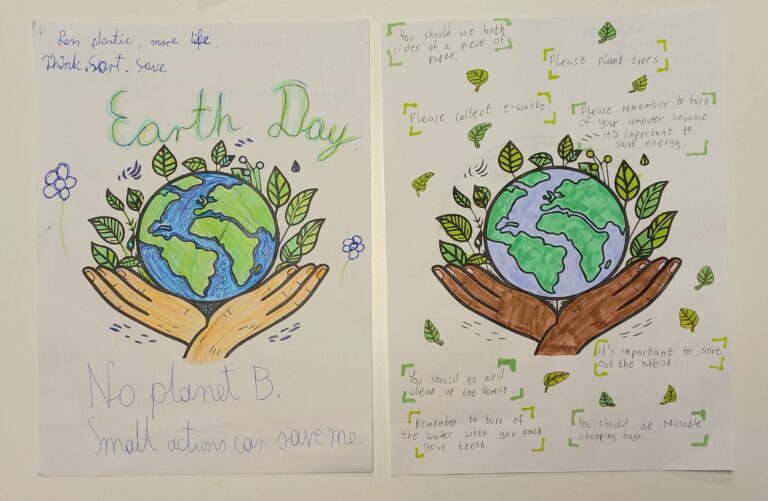 Less plastic, more life.
Think. Sort. Save
Earth Day
No planet B.
Small actions can save me.
You should use both
sides of a piece of
paper.
Please plant trees
Please collect e-waste.
Please remember to turn
of your computer because
it's important to
save energy.
It's important to sort
out the rubbish.
You should go and
cleap up the forest.
Remember to turn of
the water when you brush
your teeth.
You should use reusable
shopping bags.